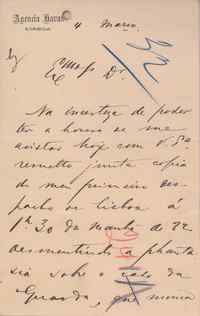 Agencia Havas
LISBOA
4 Março
Exmo Sr Dr.
Na incerteza de poder
ter a honra de me
avistar hoje com V. Exa
remetto junta copia
do meu primeiro des-
pacho de Lisboa á
1h 30 da manhã de 22
desmentindo a phanta
sia sobre o caso da
Guarda, que nunca